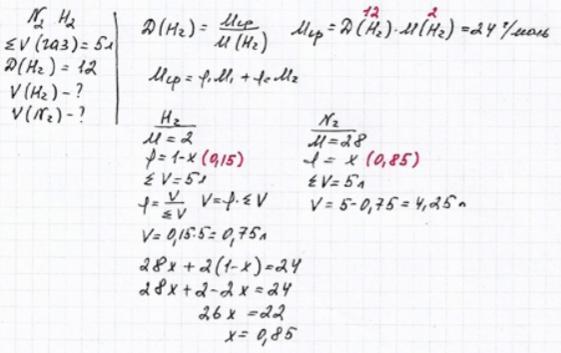 N₂ H₂
ΣV(газ) = 5л
D(H₂) = 12
V(H₂) - ?
V(N₂) - ?
D(H₂) = Mср / M(H₂)
12 2
Mср = D(H₂)·M(H₂) = 24 г/моль
Mср = φ₁M₁ + φ₂M₂
H₂
M = 2
φ = 1-x (0,15)
ΣV = 5л
φ = V / ΣV V = φ·ΣV
V = 0,15·5 = 0,75л
N₂
M = 28
φ = x (0,85)
ΣV = 5л
V = 5 - 0,75 = 4,25л
28x + 2(1-x) = 24
28x + 2 - 2x = 24
26x = 22
x = 0,85